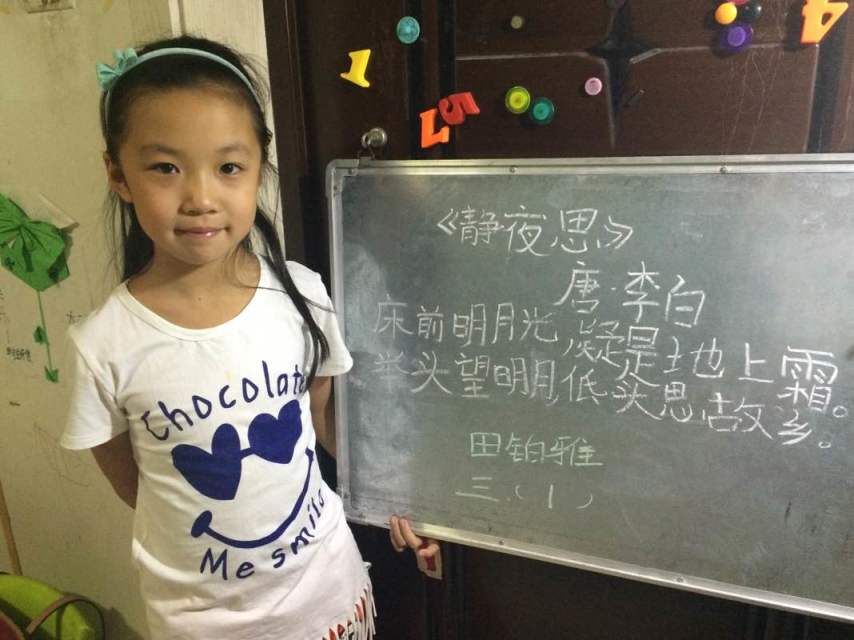 1
4
7 5
《静夜思》
唐·李白
床前明月光 凝是地上霜。
举头望明月低头思故乡。
田铂雅
三（1）
chocolate
Me smile